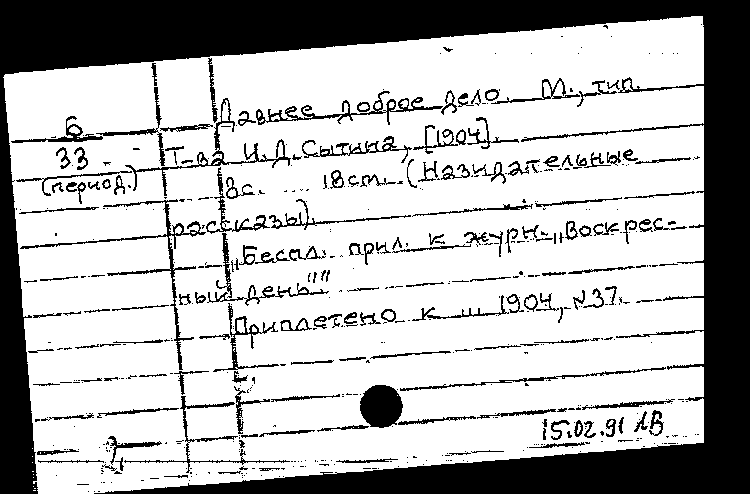 Давнее доброе дело. М., тип.
Б
33 - -
(период.)
Т-ва И.Д.Сытина, [1904].
8с. 18см. (Назидательные
рассказы).
„Беспл. прил. к журн. „Воскрес-
ный день""
Приплетено к ... 1904, №37.
2,
15.02.91 АВ